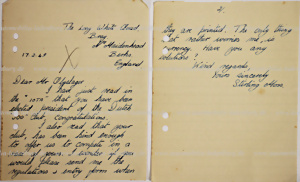 The Long White Cloud,
Bray
Nr Maidenhead
Berks
England
Dear Mr
I had just read in
the that you have been
elected president of the Dutch
500 club, congratulations.
I also read that your
club, has been kind enough
to offer us to compete in a
race of yours. I wonder if you
would please send me the
regulations & entry form when
2.
they are printed. The only thing
that rather worries me, is
currency. Have you any
solutions?
Kind regards,
Yours sincerely
Stirling Moss